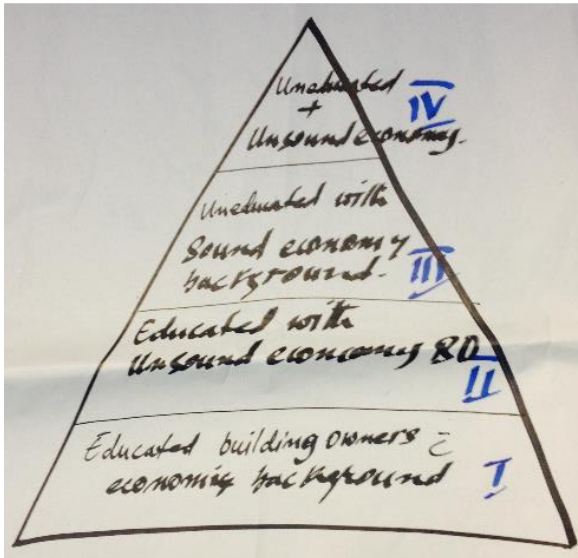 Uneducated
+ IV
Unsound economy.
Uneducated with
Sound economy
background. III
Educated with
Unsound economy
II
Educated building owners
economic background I